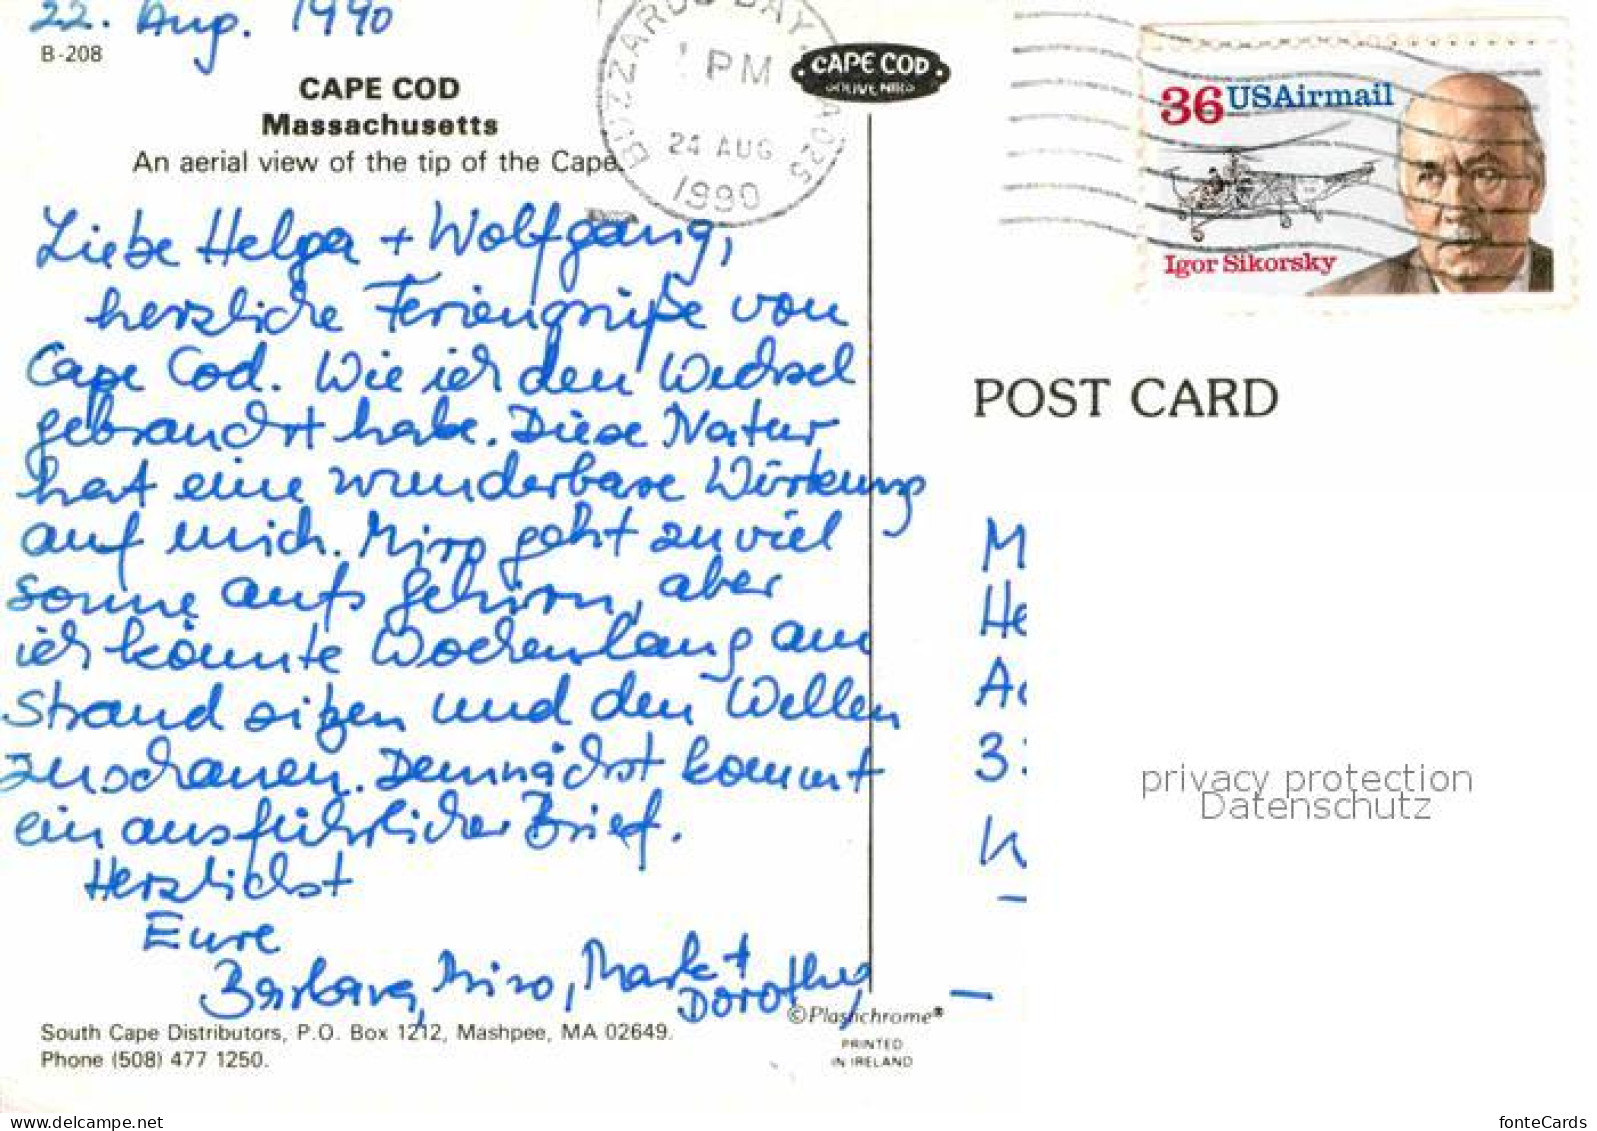 22. Aug. 1990
B-208
CAPE COD
Massachusetts
An aerial view of the tip of the Cape.
BUZZARDS BAY, MA 025
PM
24 AUG
1990
CAPE COD
SOUVENIRS
36 USAirmail
Igor Sikorsky
Liebe Helga + Wolfgang,
herzliche Feriengrüße von
Cape Cod. Wie ich den Wechsel
gebraucht habe. Diese Natur
hat eine wunderbare Wirkung
auf mich. Miro geht zu viel
sonne aufs gehirn, aber
ich könnte Wochenlang am
Strand sitzen und den Wellen
zuschauen. Demnächst kommt
ein ausführlicher Brief.
Herzlichst
Eure
Barbara, Miro, Mark +
Dorothea
POST CARD
M
He
3
privacy protection
Datenschutz
South Cape Distributors, P.O. Box 1212, Mashpee, MA 02649.
Phone (508) 477 1250.
©Plastichrome®
PRINTED
IN IRELAND
https://www.delcampe.net
fonteCards